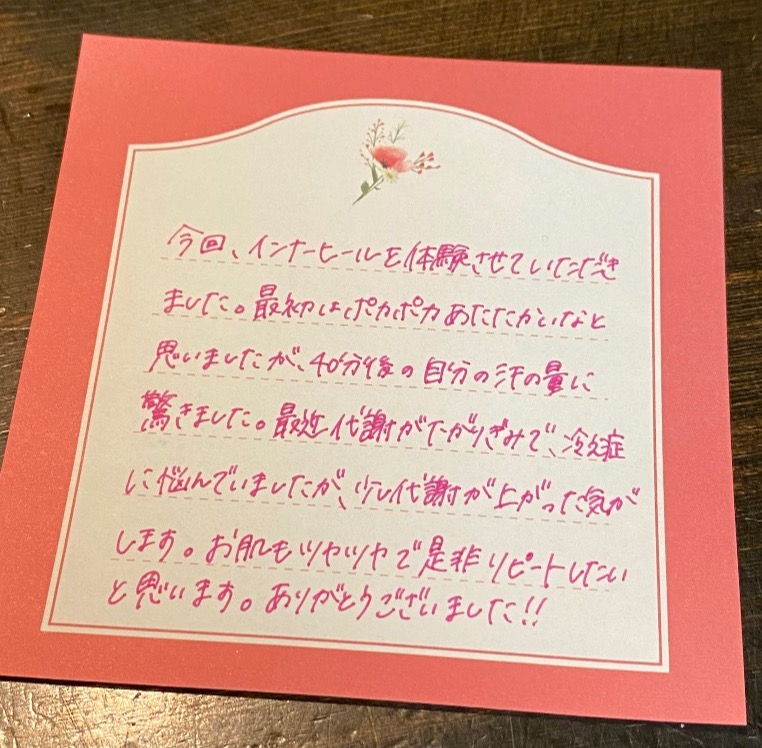 今回、インナーヒールを体験させていただき
ました。最初はポカポカあたたかいなと
思いましたが、40分後の自分の汗の量に
驚きました。最近代謝が下がりぎみで、冷え症
に悩んでいましたが、少し代謝が上がった気が
します。お肌もツヤツヤで是非リピートしたい
と思います。ありがとうございました!!